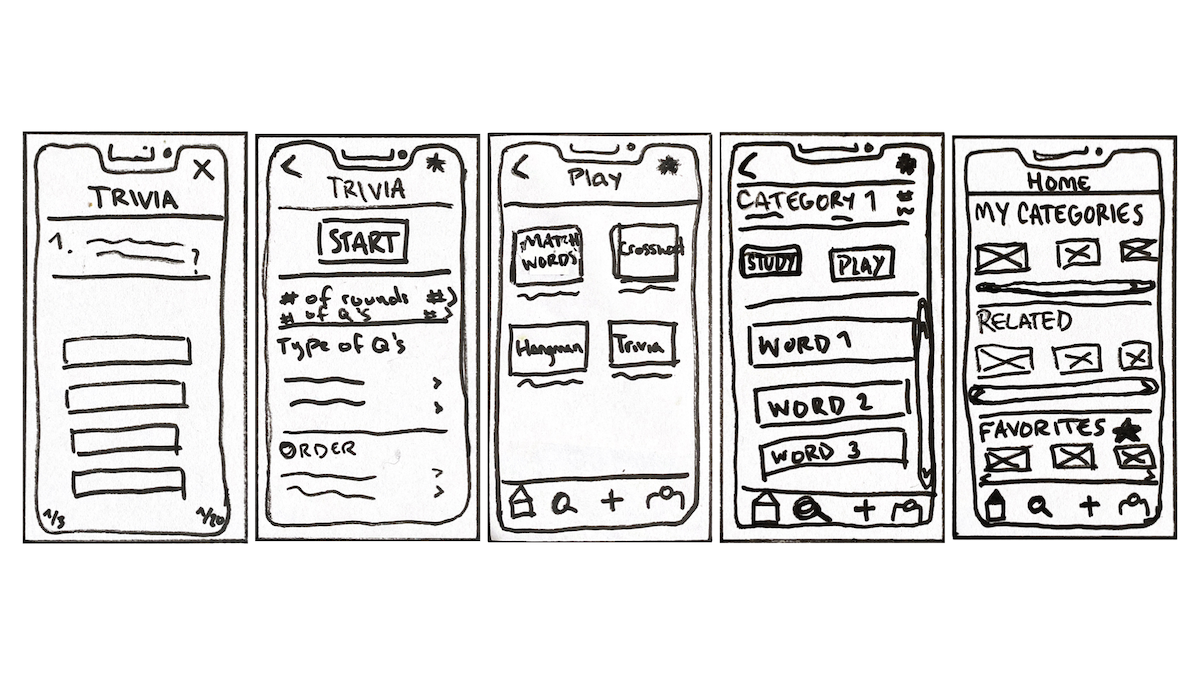 TRIVIA
1. ?
1/3 1/20
TRIVIA
START
# of rounds #
# of Q's #
Type of Q's
ORDER
Play
MATCH
WORDS
Crossword
Hangman
Trivia
CATEGORY 1
STUDY PLAY
WORD 1
WORD 2
WORD 3
HOME
MY CATEGORIES
RELATED
FAVORITES